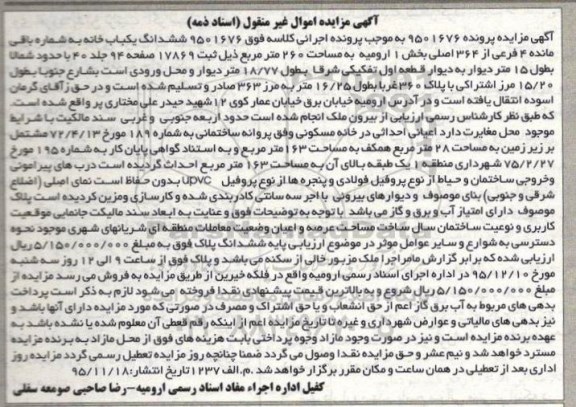 آگهی مزایده اموال غیر منقول (اسناد ذمه)
آگهی مزایده پرونده ۹۵۰۱۶۷۶ به موجب پرونده اجرائی کلاسه فوق ۹۵۰۱۶۷۶ ششدانگ یکباب خانه به شماره باقی
مانده ۴ فرعی از ۳۶۴ اصلی بخش ۱ ارومیه به مساحت ۲۶۰ متر مربع ذیل ثبت ۱۷۸۶۹ صفحه ۹۴ جلد ۴۰ با حدود شمالا
بطول ۱۵ متر دیوار به دیوار قطعه اول تفکیکی شرقا بطول ۱۸/۷۷ متر دیوار و محل ورودی است بشارع جنوبا بطول
۱۵/۲۰ مرز اشتراکی با پلاک ۳۶۰ غربا بطول ۱۶/۲۵ متر به مرز ۳۶۳ صادر و تسلیم شده است و در حق آقای گرمان
اسوده انتقال یافته است و در آدرس ارومیه خیابان برق خیابان عمار کوی ۱۲ شهید حیدر علی مختاری پر واقع شده است.
که طبق نظر کارشناس رسمی ارزیابی از بیرون ملک انجام شده است حدود اربعه جنوبی و غربی سند مالکیت با شرایط
موجود محل مغایرت دارد اعیانی احداثی در خانه مسکونی وفق پروانه ساختمانی به شماره ۱۸۹ مورخ ۷۲/۴/۱۳ مشتمل
بر زیر زمین به مساحت ۲۸ متر مربع همکف به مساحت ۱۶۳ متر مربع و به استناد گواهی پایان کار به شماره ۱۹۵ مورخ
۷۵/۲/۲۷ شهرداری منطقه ۱ یک طبقه بالای آن به مساحت ۱۶۳ متر مربع احداث گردیده است درب های پیرامونی
وخروجی ساختمان و حیاط از نوع پروفیل فولادی و پنجره ها از نوع پروفیل upvc بدون حفاظ است نمای اصلی (اضلاع
شرقی و جنوبی) بنای موصوف و دیوارهای بیرونی با اجر سه سانتی کادر بندی شده و کارسازی ومزین گردیده است پلاک
موصوف دارای امتیاز آب و برق و گاز می باشد با توجه به توضیحات فوق و عنایت به ابعاد سند مالکیت جانمایی موقعیت
کاربری و نوعیت ساختمان سال ساخت مساحت عرصه و اعیان وضعیت معاملات منطقه ای شریانهای شهری موجود نحوه
دسترسی به شوارع و سایر عوامل موثر در موضوع ارزیابی پایه ششدانگ پلاک فوق به مبلغ ۵/۱۵۰/۰۰۰/۰۰۰ ریال
ارزیابی شده که برابر گزارش مامر اجرا ملک مزبور خالی از سکنه می باشد و پلاک فوق از ساعت ۹ الی ۱۲ روز سه شنبه
مورخ ۹۵/۱۲/۱۰ در اداره اجرای اسناد رسمی ارومیه واقع در فلکه خیرین از طریق مزایده به فروش می رسد مزایده از
مبلغ ۵/۱۵۰/۰۰۰/۰۰۰ ریال شروع و به بالاترین قیمت پیشنهادی نقدا فروخته می شود لازم به ذکر است پرداخت
بدهی های مربوط به آب برق گاز اعم از حق انشعاب و یا حق اشتراک و مصرف در صورتی که مورد مزایده دارای آنها باشد و
نیز بدهی های مالیاتی و عوارض شهرداری و غیره تا تاریخ مزایده اعم از اینکه رقم قطعی آن معلوم شده یا نشده باشد به
عهده برنده مزایده است و نیز در صورت وجود مازاد وجوه پرداختی بابت هزینه های فوق از محل مازاد به برنده مزایده
مسترد خواهد شد و نیم عشر و حق مزایده نقدا وصول می گردد ضمنا چنانچه روز مزایده تعطیل رسمی گردد مزایده روز
اداری بعد از تعطیلی در همان ساعت و مکان مقرر برگزار خواهد شد .م.الف ۱۲۳۷ تاریخ انتشار: ۹۵/۱۱/۱۸
کفیل اداره اجراء مفاد اسناد رسمی ارومیه - رضا صاحبی صومعه سفلی